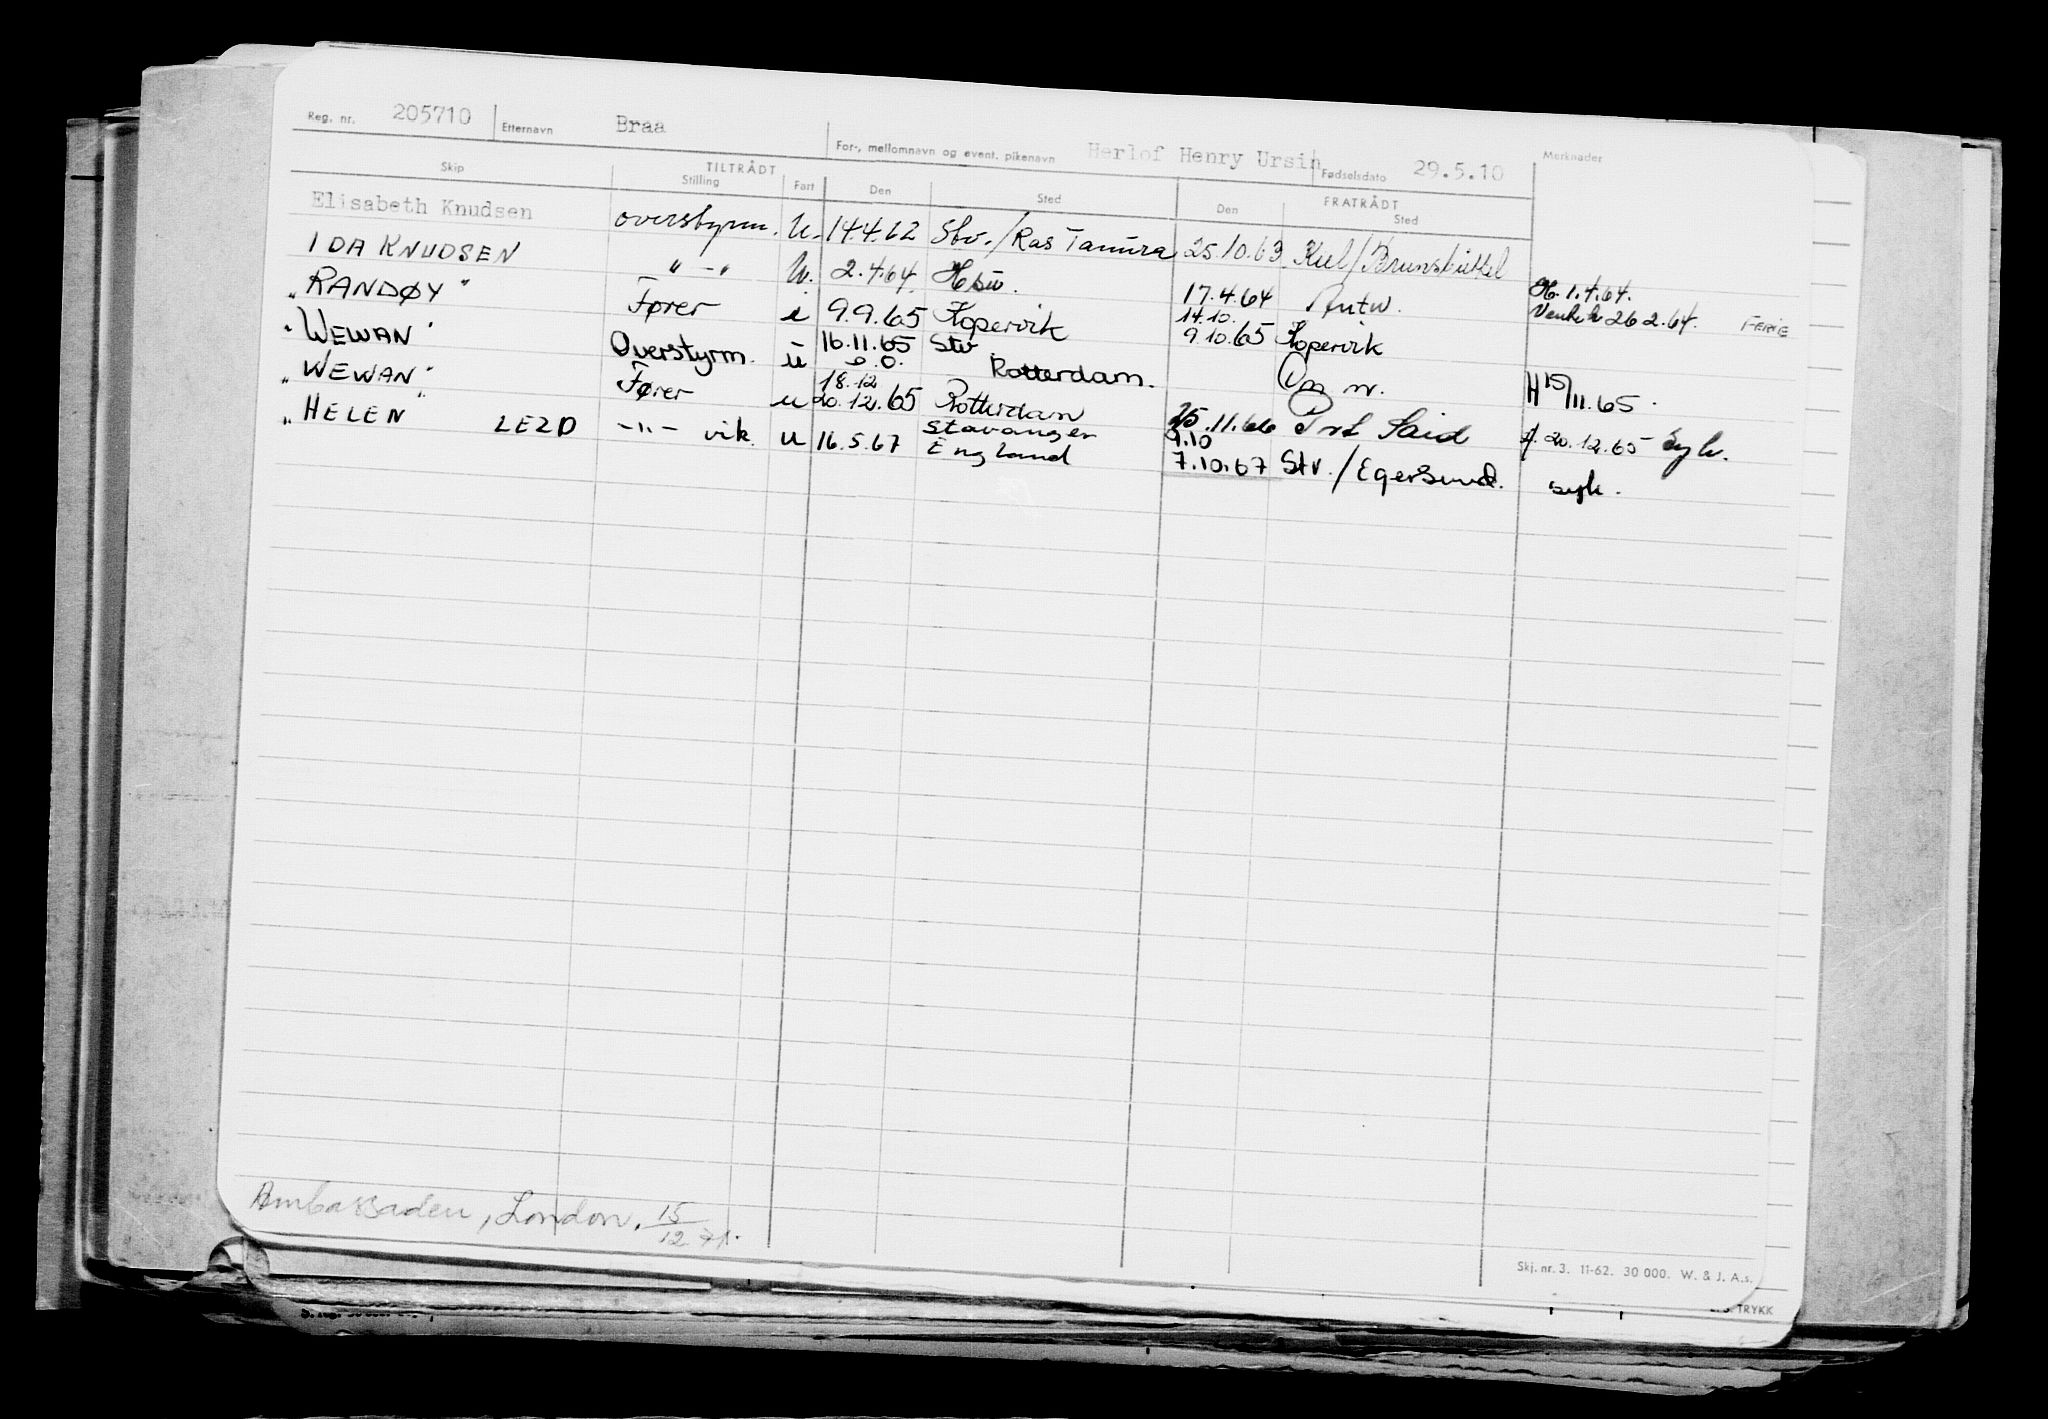 Reg. nr. 205710 Etternavn Braa For-, mellomnavn og event. pikenavn Herlof Henry Ursin Fødselsdato 29.5.10 Merknader
Skip TILTRÅDT Stilling Fart Den Sted FRATRÅDT Den Sted
Elisabeth Knudsen overstyrm. U. 14.4.62 Stv./Ras Tanura 25.10.63 Kiel/Brunsbüttel
IDA KNUDSEN " - " U. 2.4.64. 17.4.64 Antw. 1.4.64.
"RANDØY" Fører i 9.9.65 Kopervik 14.10. 9.10.65 Kopervik 26 2.64. FERIE
"WEWAN" Overstyrm. u 16.11.65 Stv Rotterdam. Om m. H 15/11.65.
"WEWAN" Fører u 18.12 20.12.65 Rotterdam 25.11.66 Port Said 20.12.65 Syk.
"HELEN" LEZD -"- vik. u 16.5.67 Stavanger England 9.10 7.10.67 Stv./Egersund. syk.
Ambassaden, London, 15/12 71.
Skj. nr. 3. 11-62. 30 000. W. & J. A.s.
TRYKK